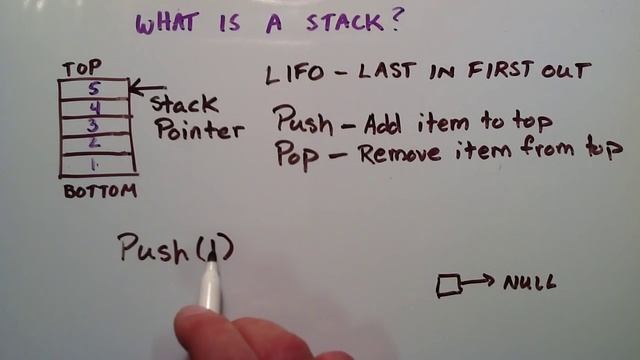 WHAT IS A STACK?
TOP
5
4
3
2
1
BOTTOM
Stack
Pointer
LIFO - LAST IN FIRST OUT
Push - Add item to top
Pop - Remove item from top
Push(1)
NULL